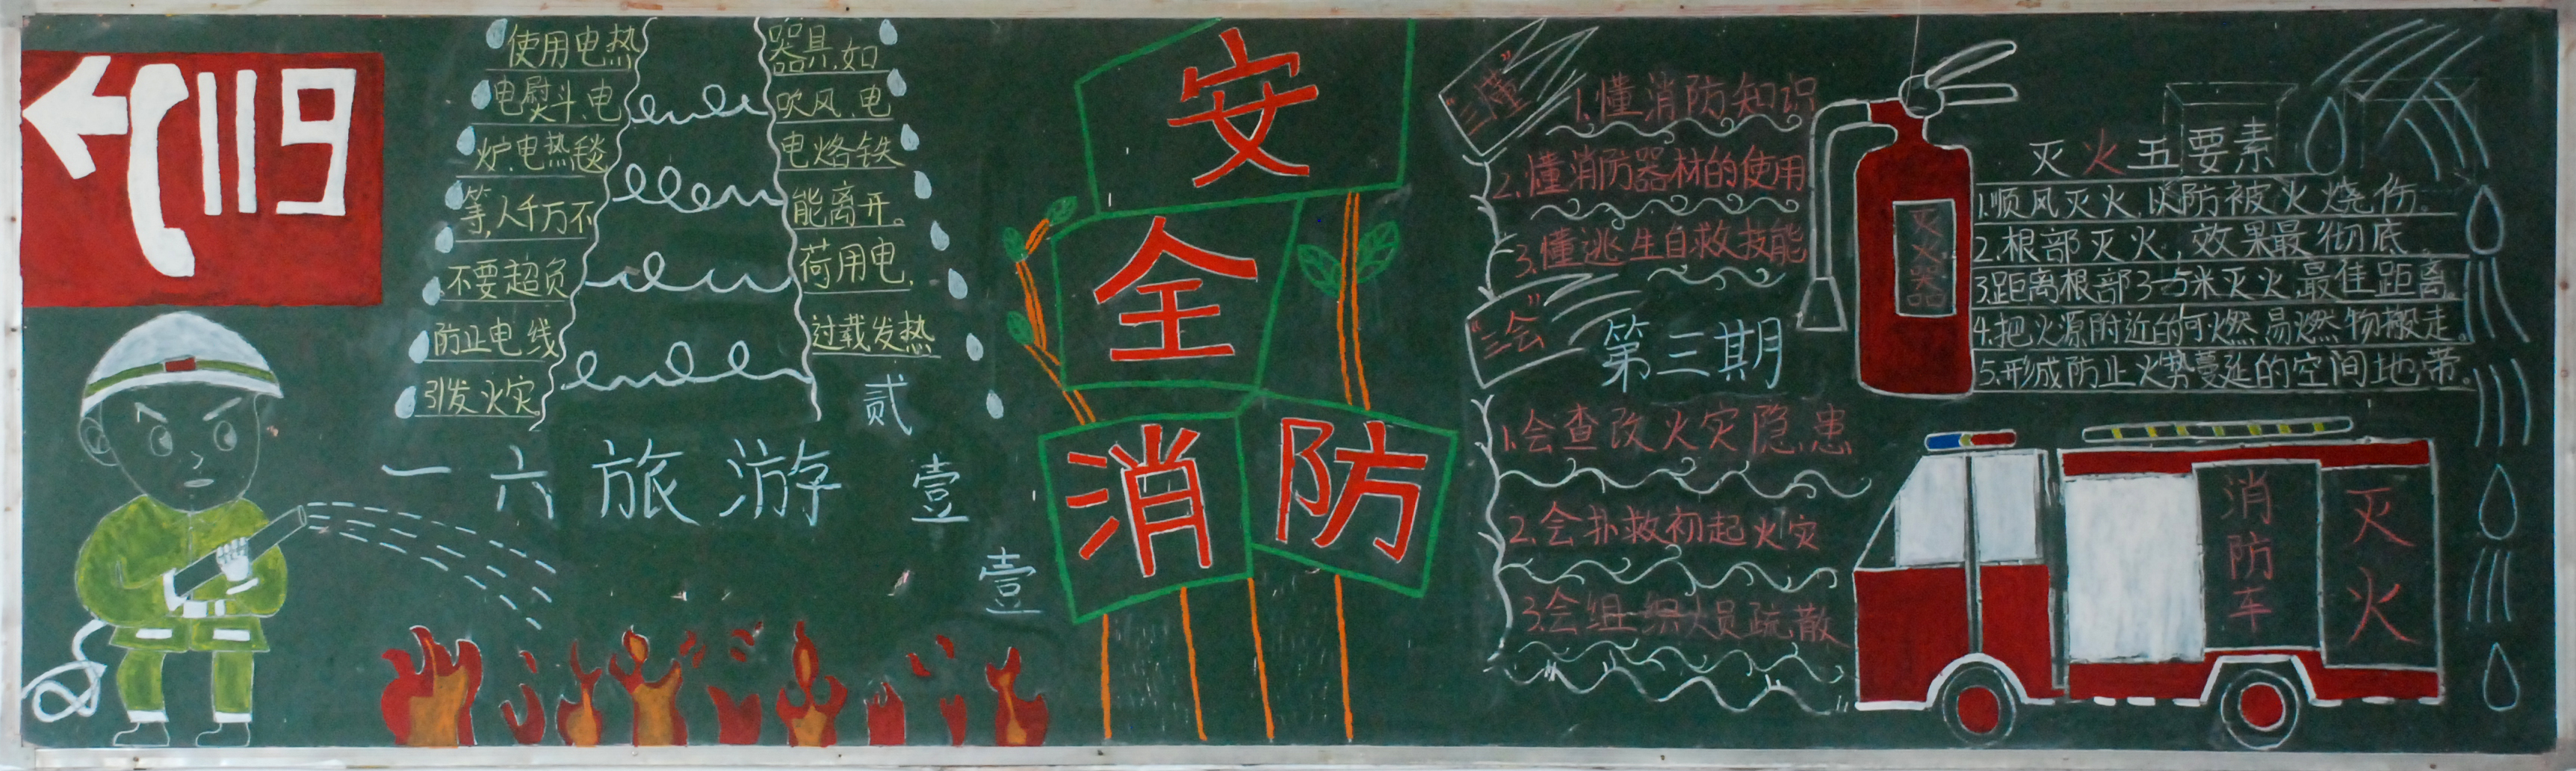 119
使用电热 器具,如
电熨斗、电 吹风、电
炉、电热毯 电烙铁
等,人千万不 能离开。
不要超负 荷用电,
防止电线 过载发热
引发火灾
一六旅游
贰
壹
壹
安
全
消防
“三懂”
1.懂消防知识
2.懂消防器材的使用
3.懂逃生自救技能
“三会”
第三期
1.会查改火灾隐患
2.会扑救初起火灾
3.会组织人员疏散
灭火器
灭火五要素
1.顺风灭火,以防被火烧伤。
2.根部灭火,效果最彻底
3.距离根部3-5米灭火最佳距离。
4.把火源附近的可燃易燃物搬走。
5.形成防止火势蔓延的空间地带。
消防车
灭火